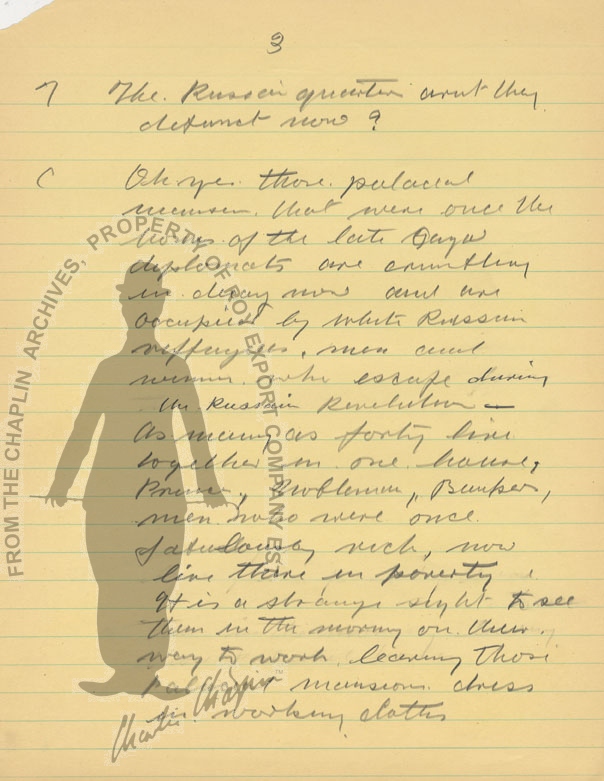 3
7 The. Russian quarters arnt they
defunct now ?
C Oh yes. those. palacial
mansion. that were once the
homes. of the late
diplomats are crumbling
in decay now and are
occupied by white Russian
reffugees, men and
women. who escape during
the. Russian Revolution —
As many as forty live
together in. one. house,
Prince, Nobleman, Bankers,
men who were once
fabulously rich, now
live there in poverty
It is a strange sight to see
them in the morning on. their.
way to work. leaving those
mansions dress
in working cloths
FROM THE CHAPLIN ARCHIVES, PROPERTY OF ROY EXPORT COMPANY EST
Charlie Chaplin ™